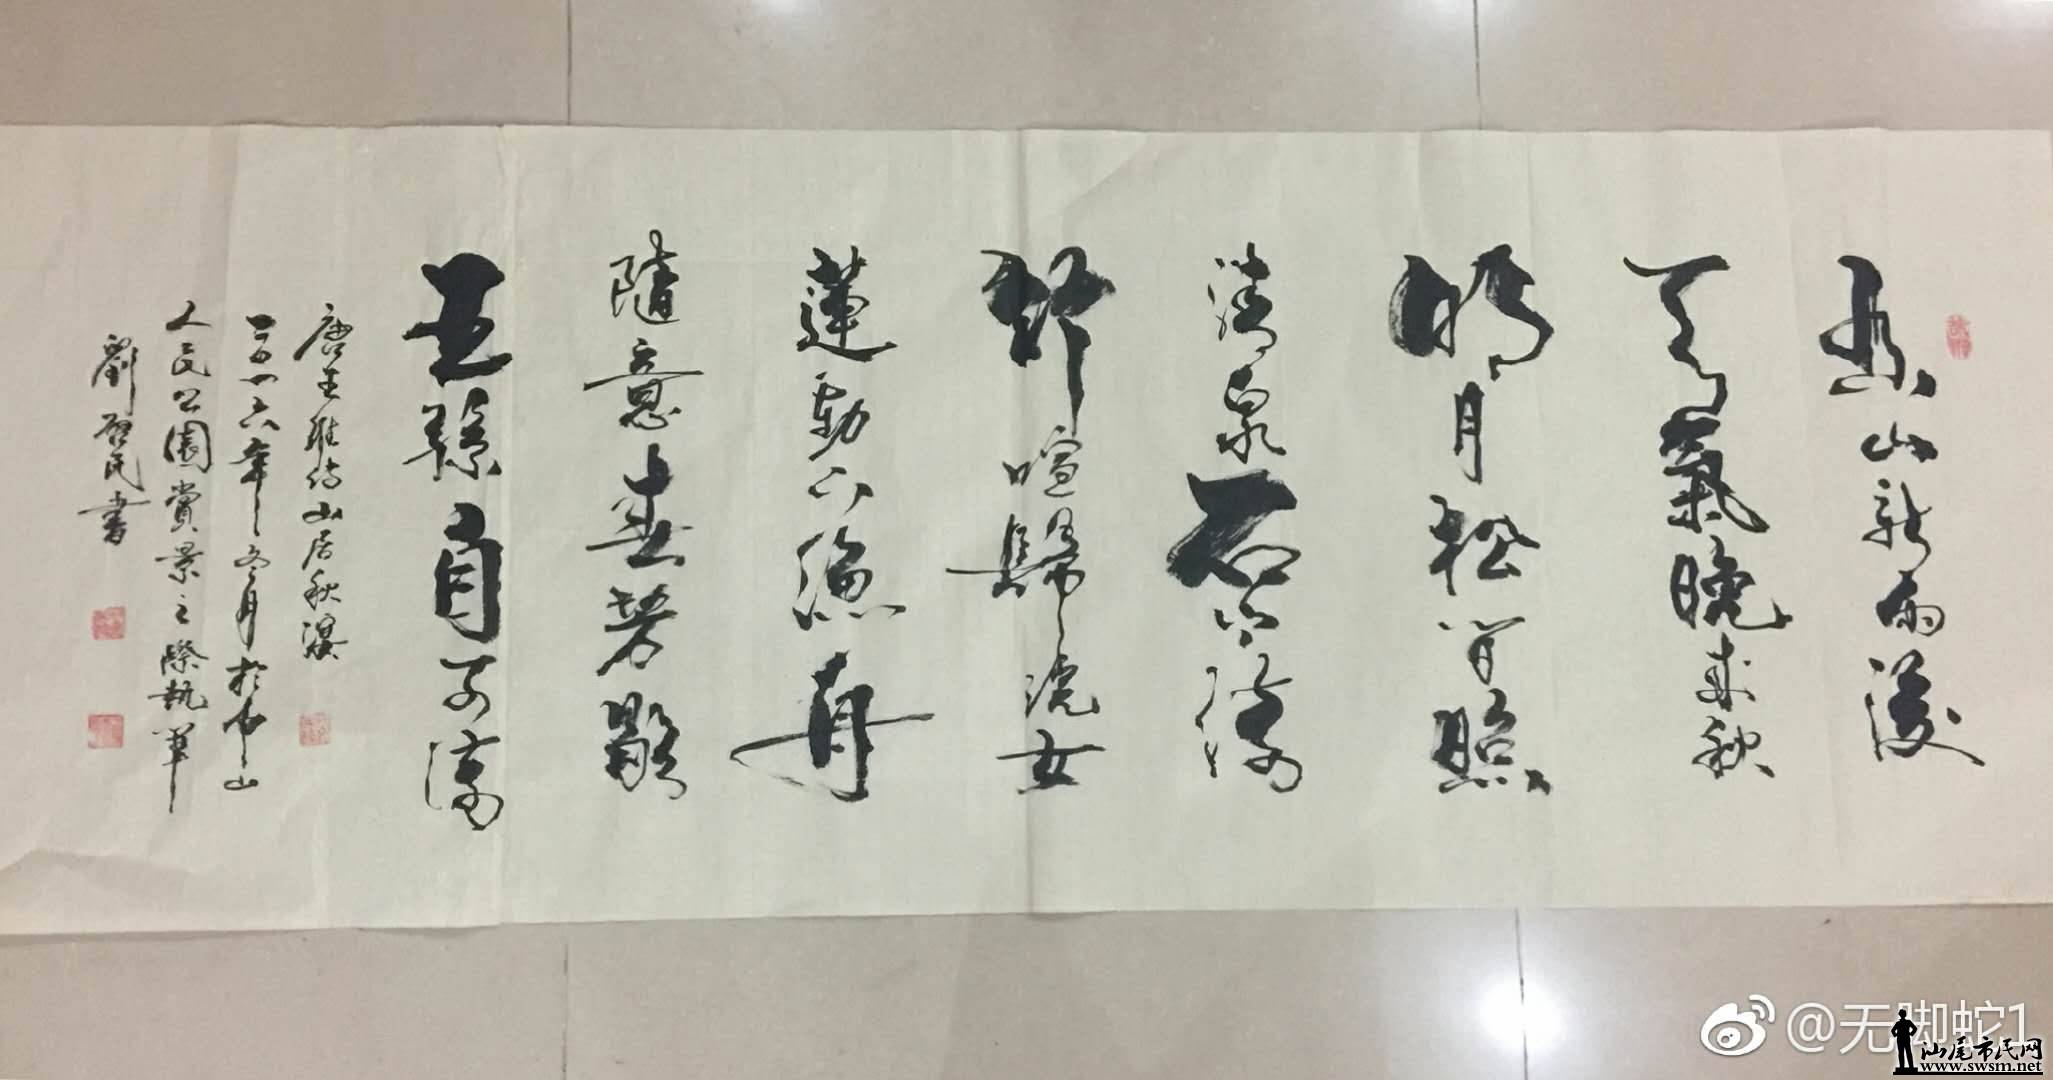 空山新雨後
天氣晚來秋
明月松间照
清泉石上流
竹喧歸浣女
蓮動下漁舟
隨意春芳歇
王孫自可留
唐王維诗山居秋溟
二〇一六年冬月於中山
人民公園賞景之際執筆
劉啟民書
@无脚蛇1
汕尾市民网
www.swsm.net